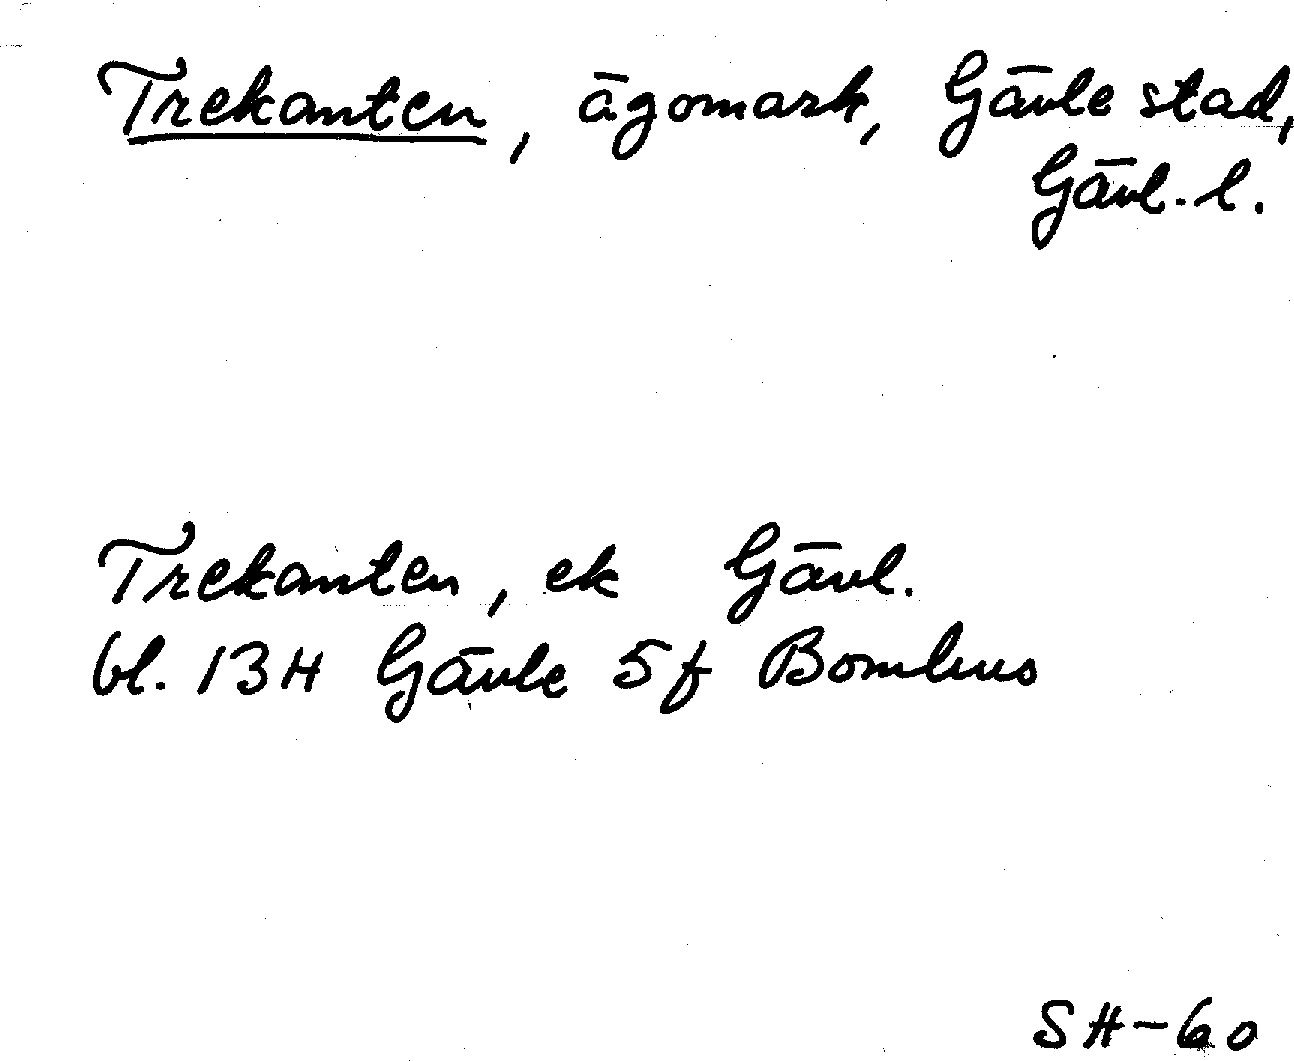 Trekanten, ägomark, Gävle stad,
Gävl. l.
Trekanten, ek Gävl.
bl. 13H Gävle 5f Bomhus
SH-60